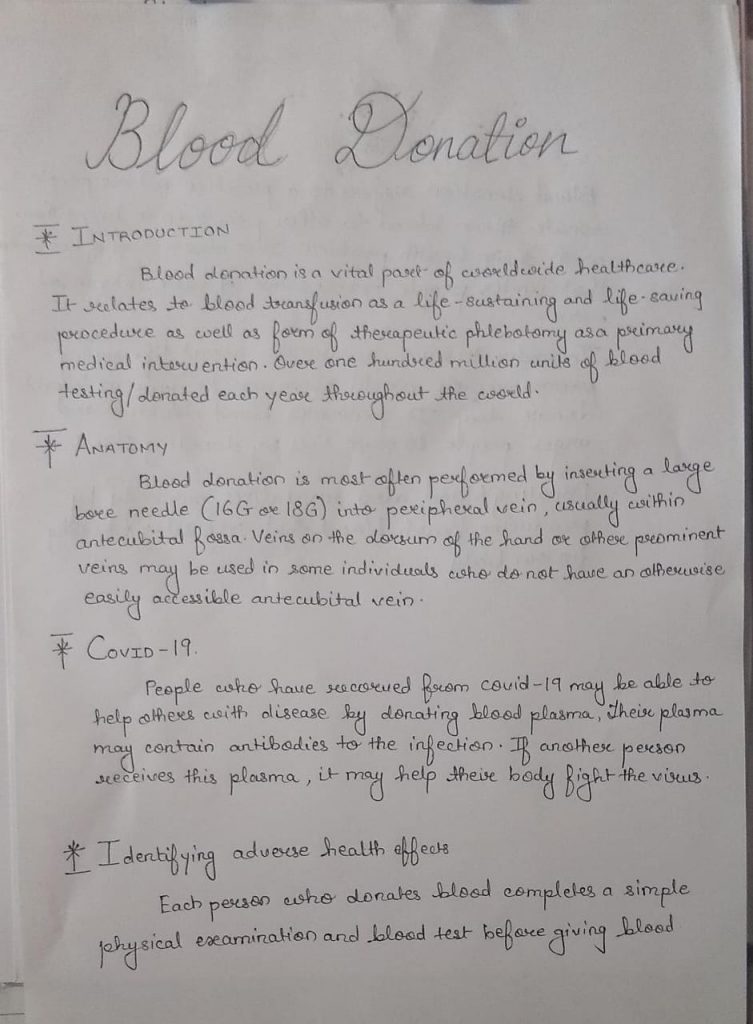 Blood Donation
* INTRODUCTION
Blood donation is a vital part of worldwide healthcare.
It relates to blood transfusion as a life-sustaining and life-saving
procedure as well as form of therapeutic phlebotomy as a primary
medical intervention. Over one hundred million units of blood
testing/donated each year throughout the world.
* ANATOMY
Blood donation is most often performed by inserting a large
bore needle (16G or 18G) into peripheral vein, usually within
antecubital fossa. Veins on the dorsum of the hand or other prominent
veins may be used in some individuals who do not have an otherwise
easily accessible antecubital vein.
* COVID-19.
People who have recovered from covid-19 may be able to
help others with disease by donating blood plasma, Their plasma
may contain antibodies to the infection. If another person
receives this plasma, it may help their body fight the virus.
* Identifying adverse health effects
Each person who donates blood completes a simple
physical examination and blood test before giving blood